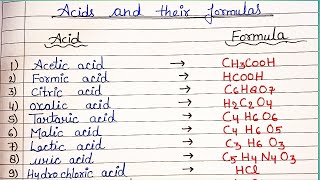 Acids and their formulas
Acid Formula
1) Acetic acid → CH3COOH
2) Formic acid → HCOOH
3) Citric acid → C6H8O7
4) oxalic acid → H2C2O4
5) Tartaric acid → C4H6O6
6) Malic acid → C4H6O5
7) Lactic acid → C3H6O3
8) uric acid → C5H4N4O3
9) Hydrochloric acid → HCl